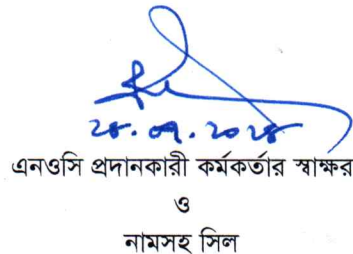 ২৪.০৭.২০২৪
এনওসি প্রদানকারী কর্মকর্তার স্বাক্ষর
ও
নামসহ সিল